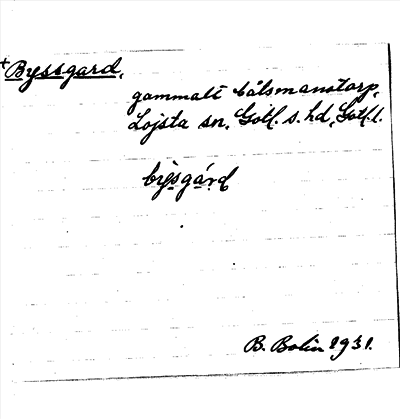 +Byssgard,
gammalt båtsmanstorp,
Lojsta sn, Gotl. s. hd, Gotl. l.
bysgárd
B. Bolin 1931.